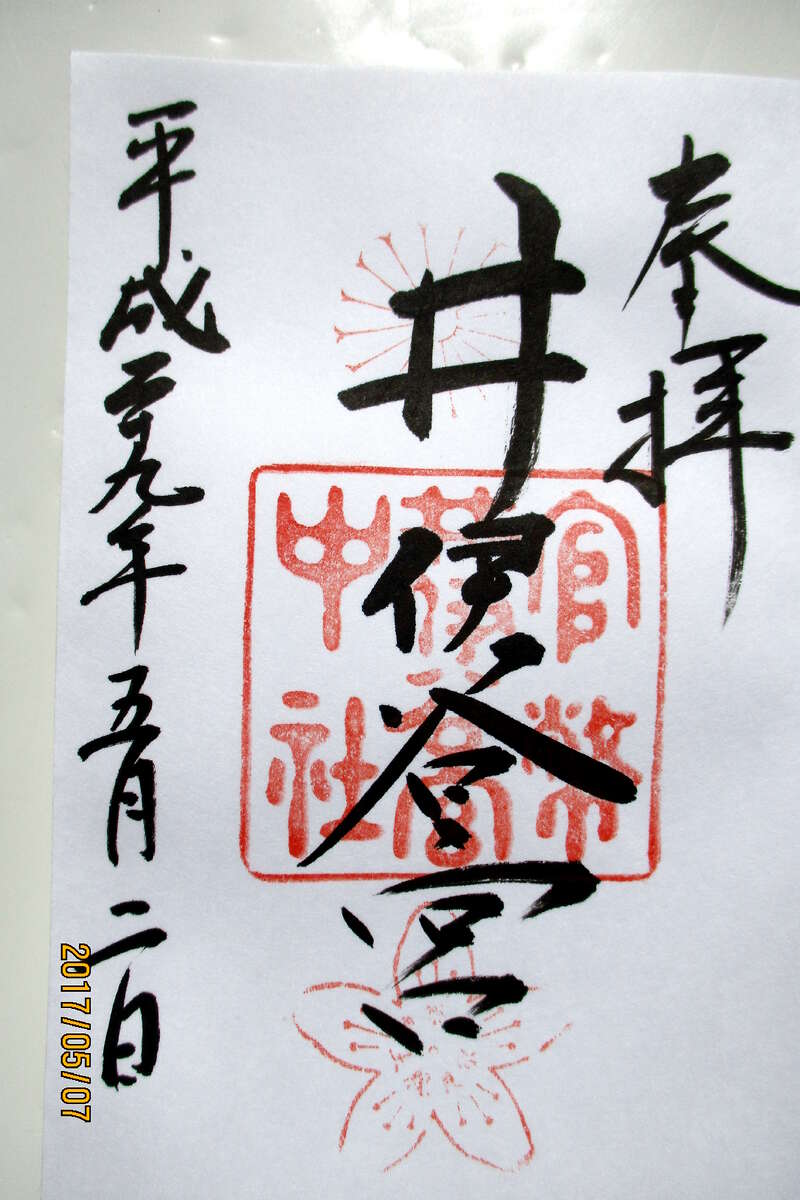 奉拝
井伊谷宮
官幣
中社
平成二十九年五月二日
2017/05/07